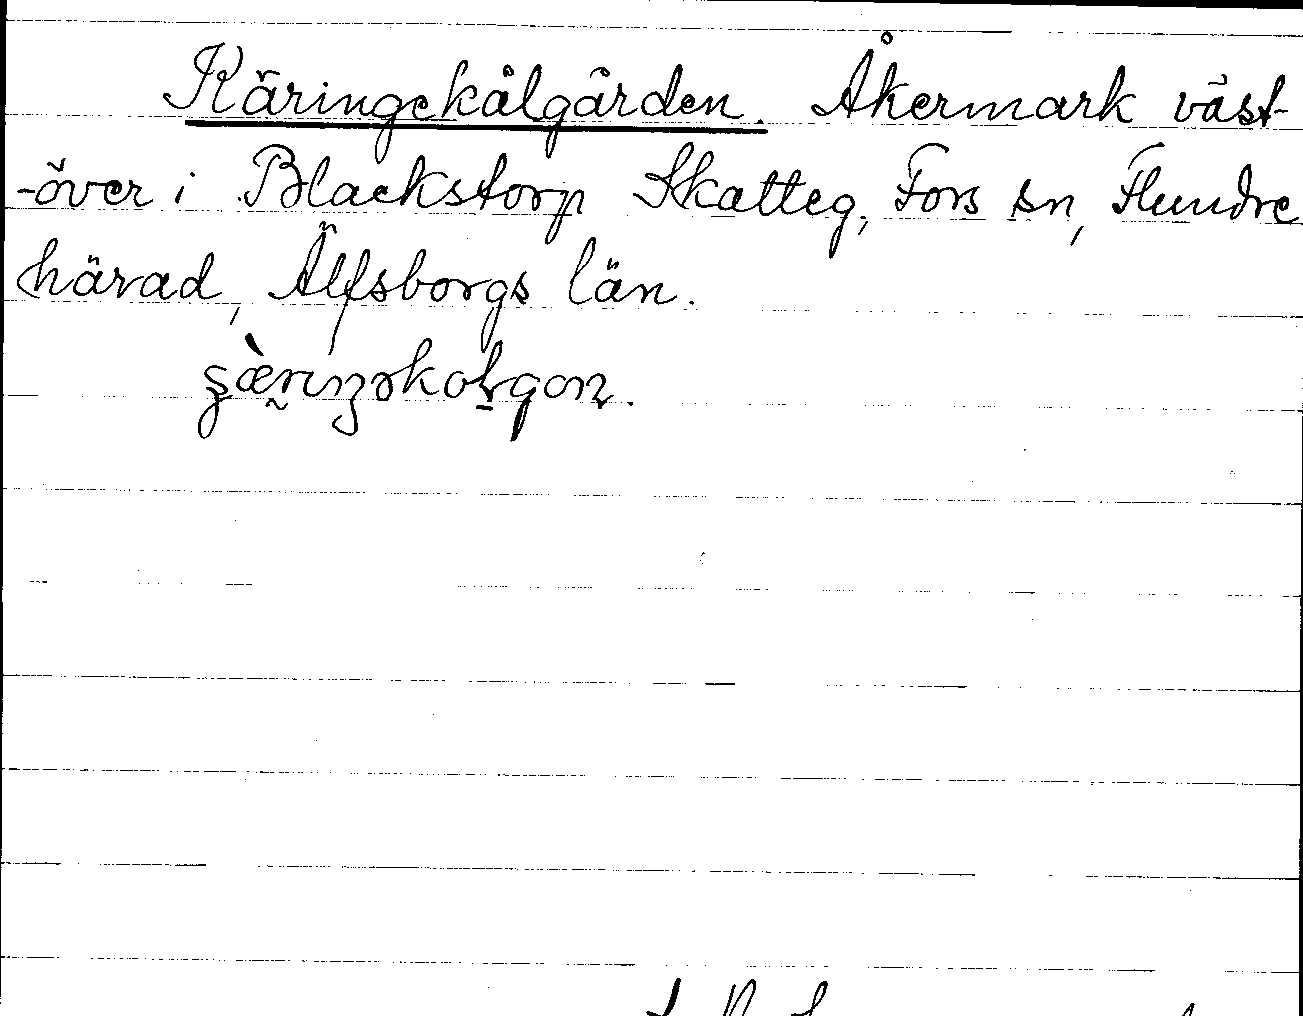 Käringekålgården. Åkermark väst-
-över i Blackstorp Skatteg, Fors sn, Flundre
härad, Älfsborgs län.